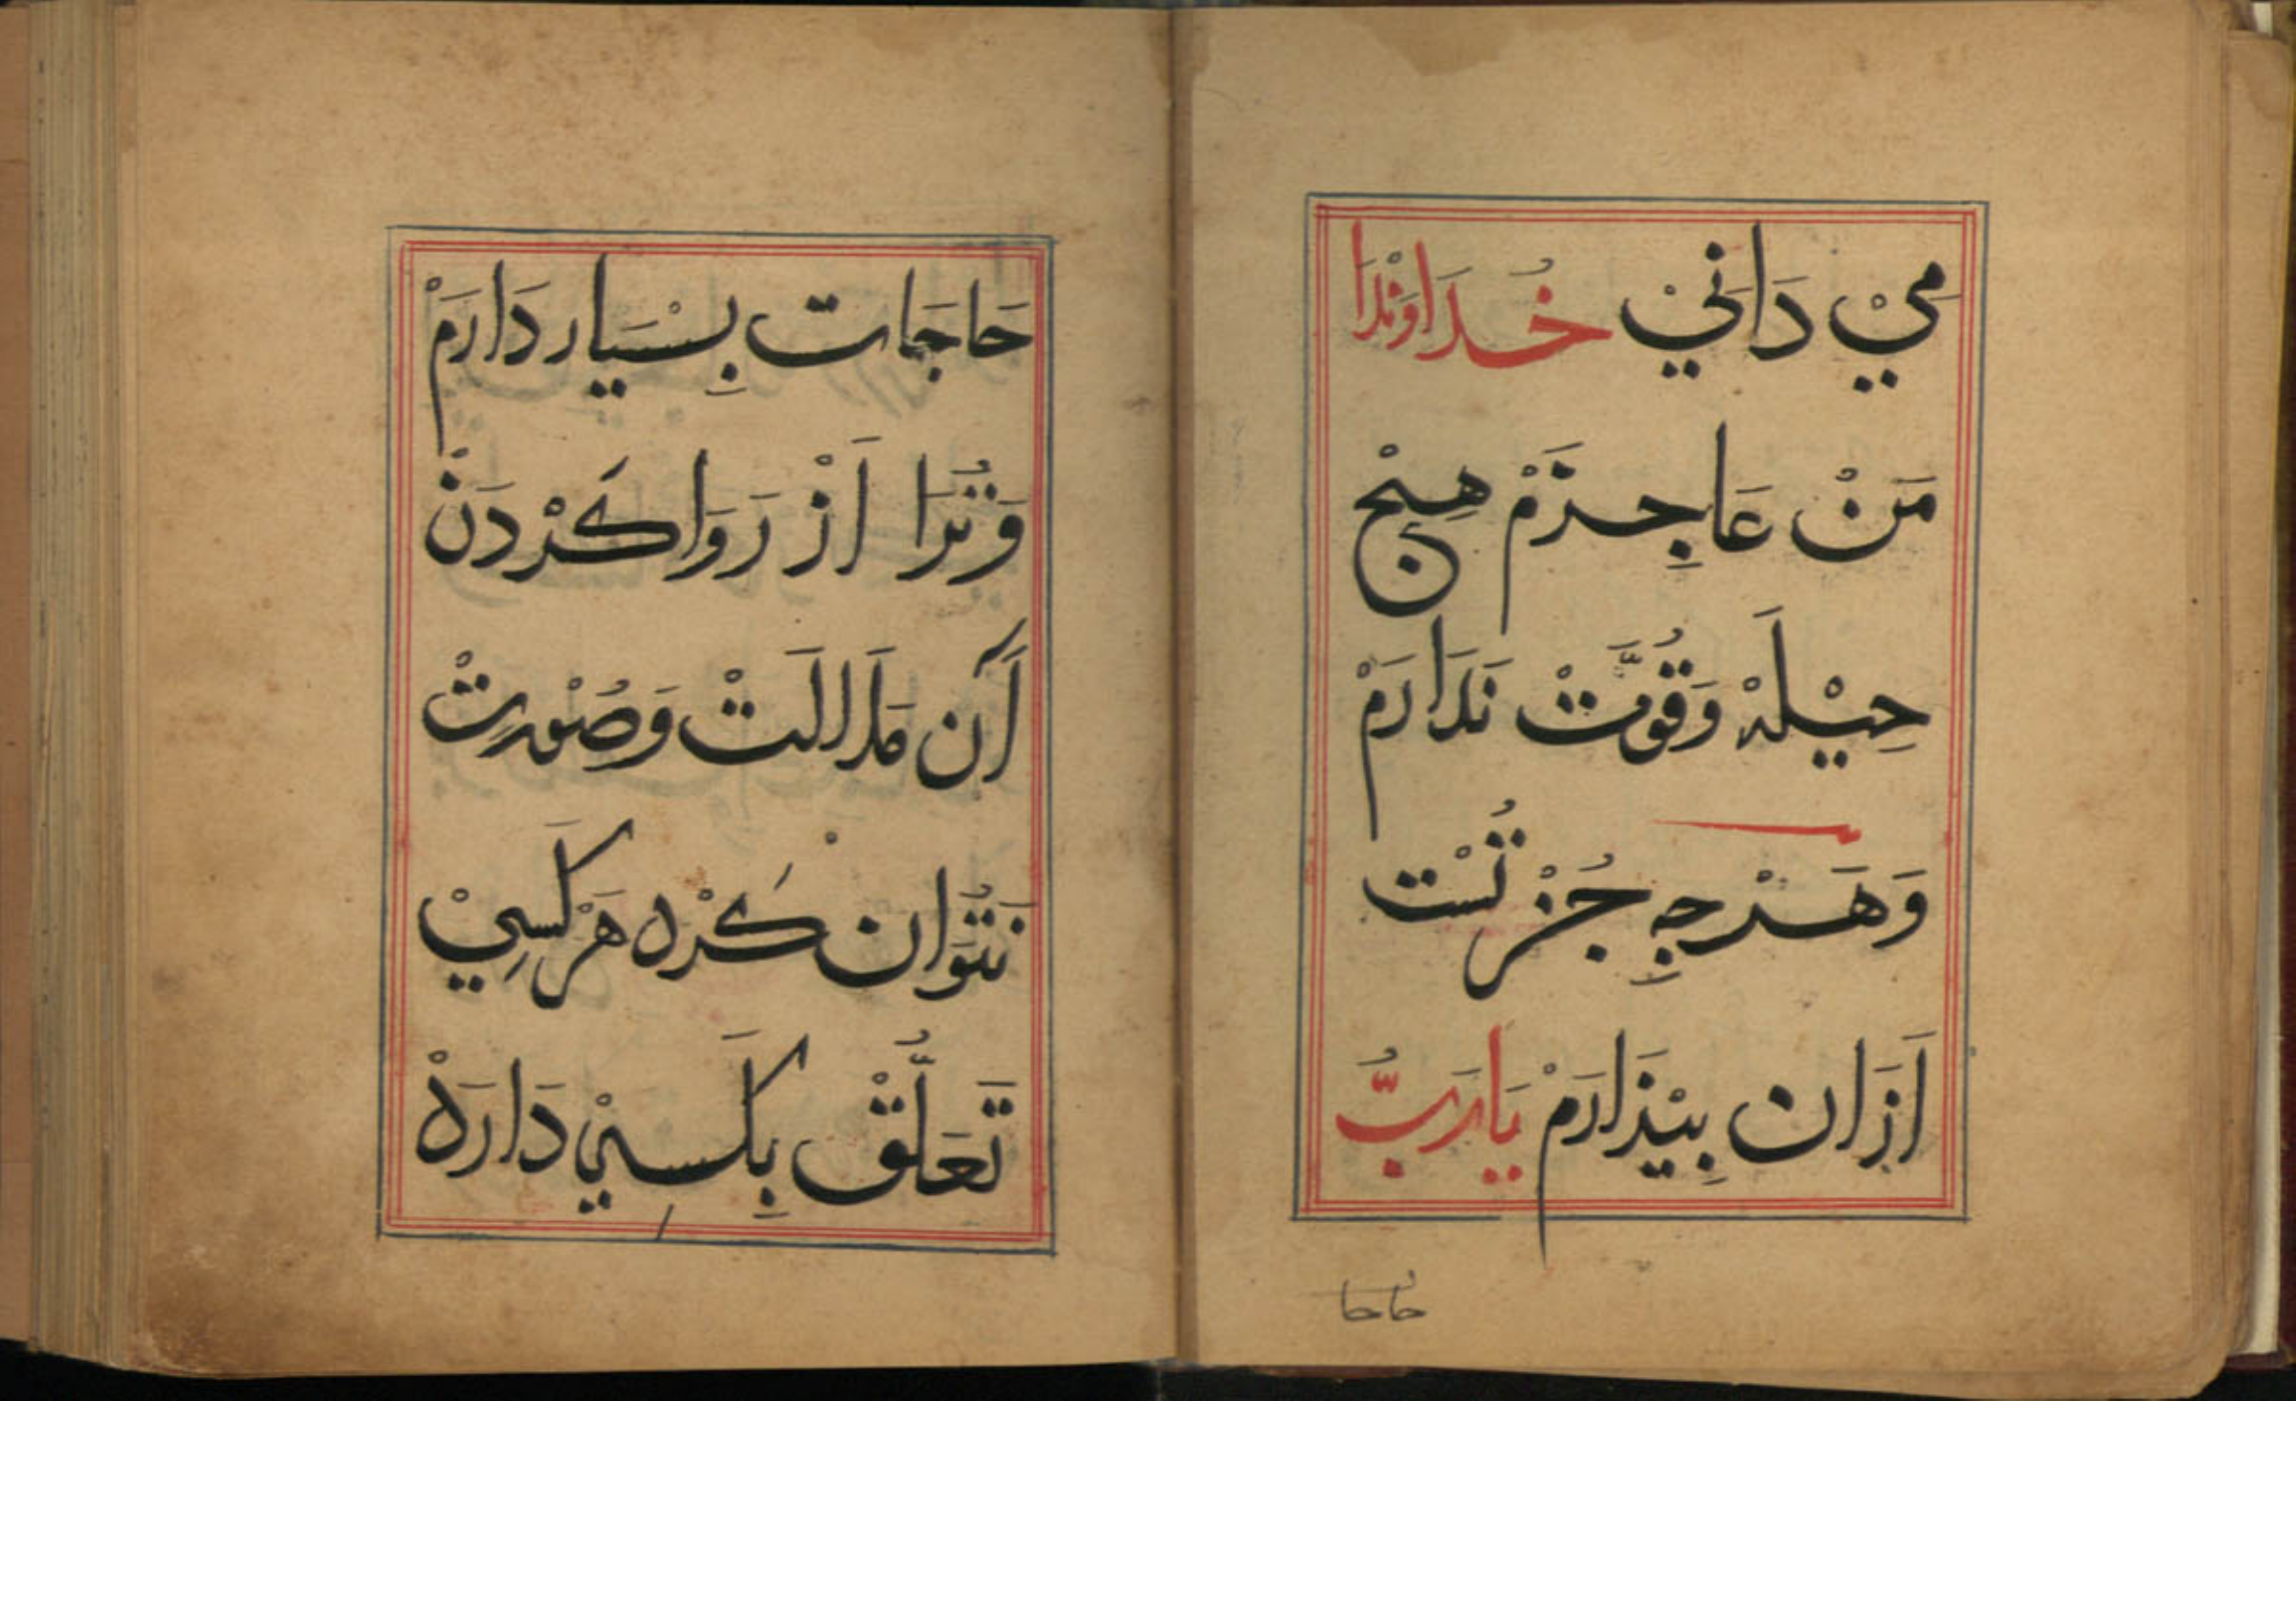 مِيْ دَانَيْ خُدَاوَنْدَا
مَنْ عَاجِزَمْ هِيْج
حِيْلَهْ وَقُوَّتْ نَدَارَمْ
وَهَرْجِهِ جُزْ تُسْت
اَزَان بِيْزَارَمْ يَارَبُّ
حاجا
حَاجَات بِسْيَار دَارَمْ
وَتُرَا اَزْ رَوَا كَرْدَنْ
اَن مَلَالَتْ وَصُوْرِتْ
نَتُوَان كَرْد هَرْكَسِيْ
تَعَلُّقْ بِكَسِيْ دَارَدْ